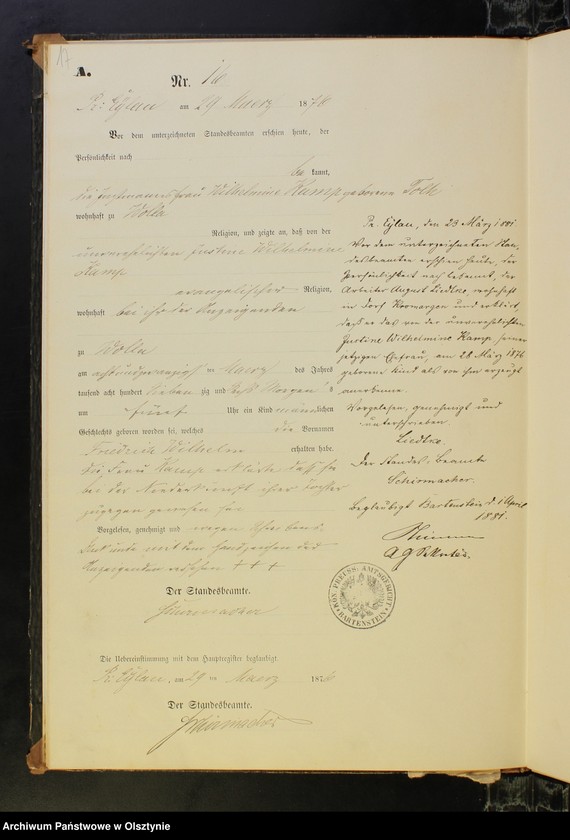 17
A.
Nr. 16
Pr: Eylau am 29 Maerz 1876
Vor dem unterzeichneten Standesbeamten erschien heute, der
Persönlichkeit nach
be kannt,
die Instmannsfrau Wilhelmine Kamp geborene Tolk
wohnhaft zu Wolla
Religion, und zeigte an, daß von der
unverehelichten Justine Wilhelmine
Kamp
evangelischer Religion,
wohnhaft bei ihr der Anzeigenden
zu Wolla
am achtundzwanzigs ten Maerz des Jahres
tausend acht hundert sieben zig und sechs Morgens
um fünf Uhr ein Kind männlichen
Geschlechts geboren worden sei, welches die Vornamen
Friedrich Wilhelm erhalten habe.
Die Frau Kamp erklärte daß sie
bei der Niederkunft ihrer Tochter
zugegen gewesen sei
Vorgelesen, genehmigt und wegen Schreibens
Unkunde mit dem Handzeichen der
Anzeigenden versehen + + +
Der Standesbeamte.
Schirmacher
Die Uebereinstimmung mit dem Hauptregister beglaubigt.
Pr. Eylau, am 29 ten Maerz 1876
Der Standesbeamte.
Schirmacher
Pr. Eylau, den 23 März 1881
Vor dem unterzeichneten Stan-
desbeamten erschien heute, der
Persönlichkeit nach bekannt, der
Arbeiter August Liedtke, wohnhaft
in Dorf und erklärt,
daß er das von der unverehelichten
Justine Wilhelmine Kamp, seiner
jetzigen Ehefrau, am 28 März 1876
geborene Kind als von ihm erzeugt
anerkenne
Vorgelesen, genehmigt und
unterschrieben
Liedtke.
Der Standes-beamte
Schirmacher.
beglaubigt Bartenstein d. 1 April
1881.
A G Sekretär.
KÖN. PREUSS. AMTSGERICHT
* BARTENSTEIN *
Archiwum Państwowe w Olsztynie